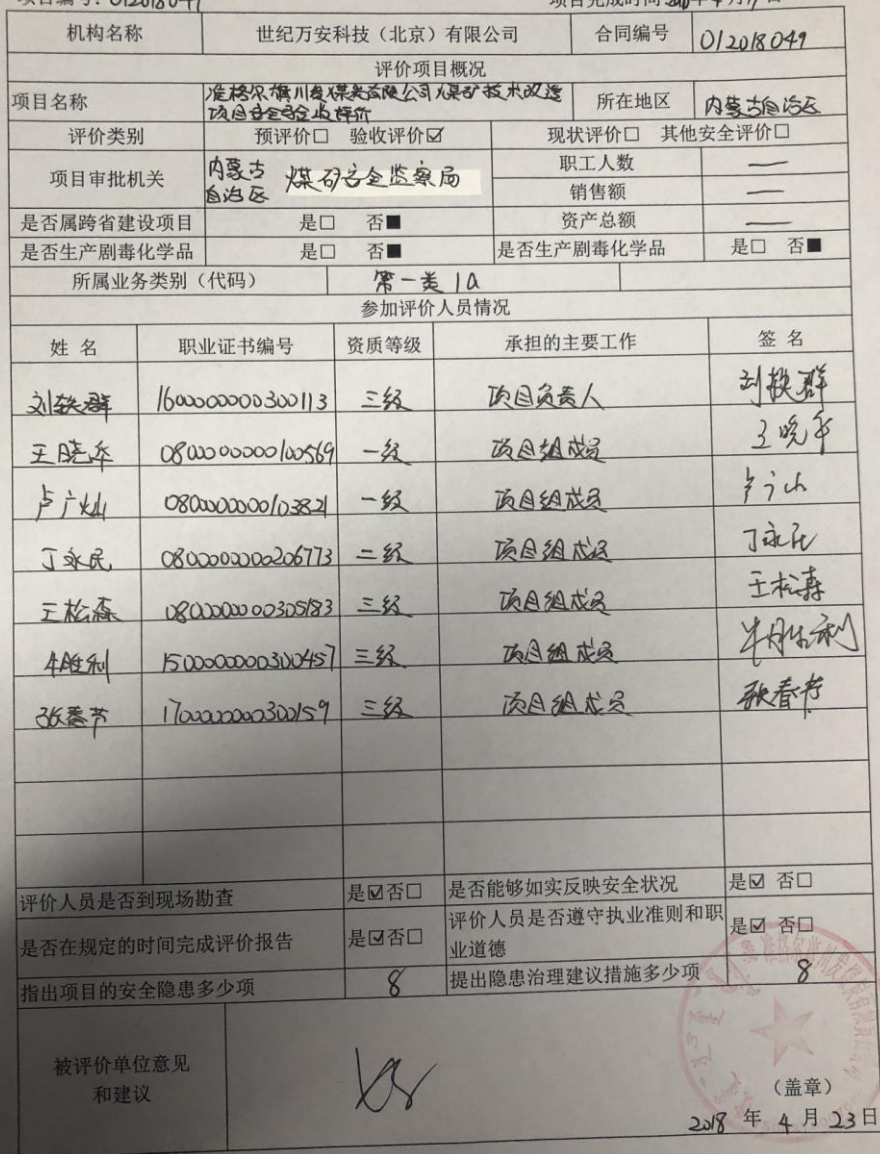 项目编号: 012018049 项目完成时间 2018年4月17日
机构名称 世纪万安科技（北京）有限公司 合同编号 012018049
评价项目概况
项目名称 准格尔旗川发煤炭有限公司煤矿技术改造 所在地区 内蒙古自治区
项目安全验收评价
评价类别 预评价□ 验收评价☑ 现状评价□ 其他安全评价□
项目审批机关 内蒙古自治区 煤矿安全监察局 职工人数 —
销售额 —
是否属跨省建设项目 是□ 否■ 资产总额 —
是否生产剧毒化学品 是□ 否■ 是否生产剧毒化学品 是□ 否■
所属业务类别（代码） 第一类 1a
参加评价人员情况
姓名 职业证书编号 资质等级 承担的主要工作 签名
刘轶群 1600000000300113 三级 项目负责人 刘轶群
王晓华 0800000000100569 一级 项目组成员 王晓华
卢广灿 0800000000103821 一级 项目组成员
丁永民 0800000000206773 二级 项目组成员 丁永民
王松森 0800000000305183 三级 项目组成员 王松森
牛胜利 1500000000300457 三级 项目组成员 牛胜利
张春节 1700000000300159 三级 项目组成员 张春节
评价人员是否到现场勘查 是☑否□ 是否能够如实反映安全状况 是☑ 否□
是否在规定的时间完成评价报告 是☑否□ 评价人员是否遵守执业准则和职业道德 是☑ 否□
指出项目的安全隐患多少项 8 提出隐患治理建议措施多少项 8
被评价单位意见
和建议
（盖章）
2018 年 4 月 23 日